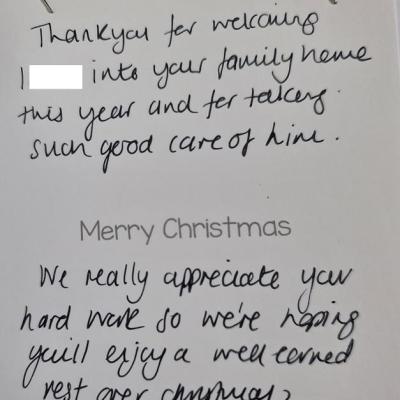 Thankyou for welcoming
into your family home
this year and for taking
such good care of him.
Merry Christmas
We really appreciate your
hard work so we're hoping
you'll enjoy a well earned
rest over christmas